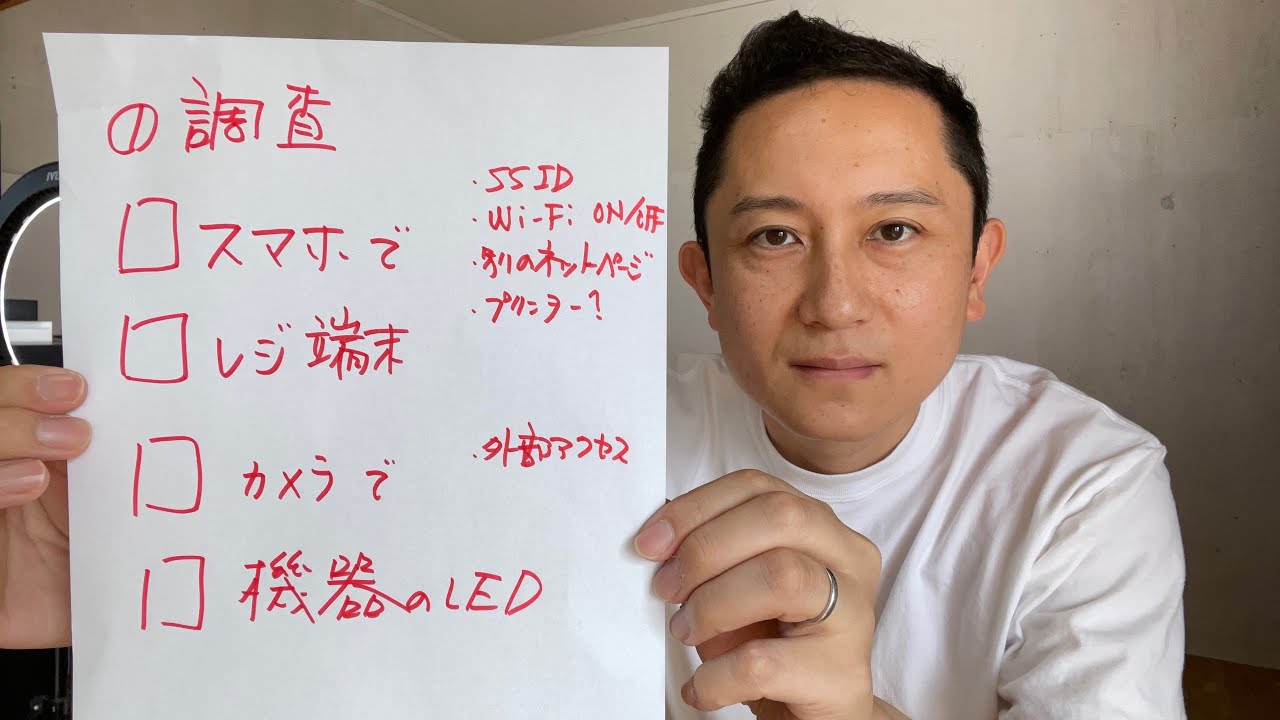 ①調査
□スマホで
・SSID
・Wi-Fi ON/OFF
・別のネットページ
・プリンター?
□レジ端末
□カメラで
・外部アクセス
□機器のLED